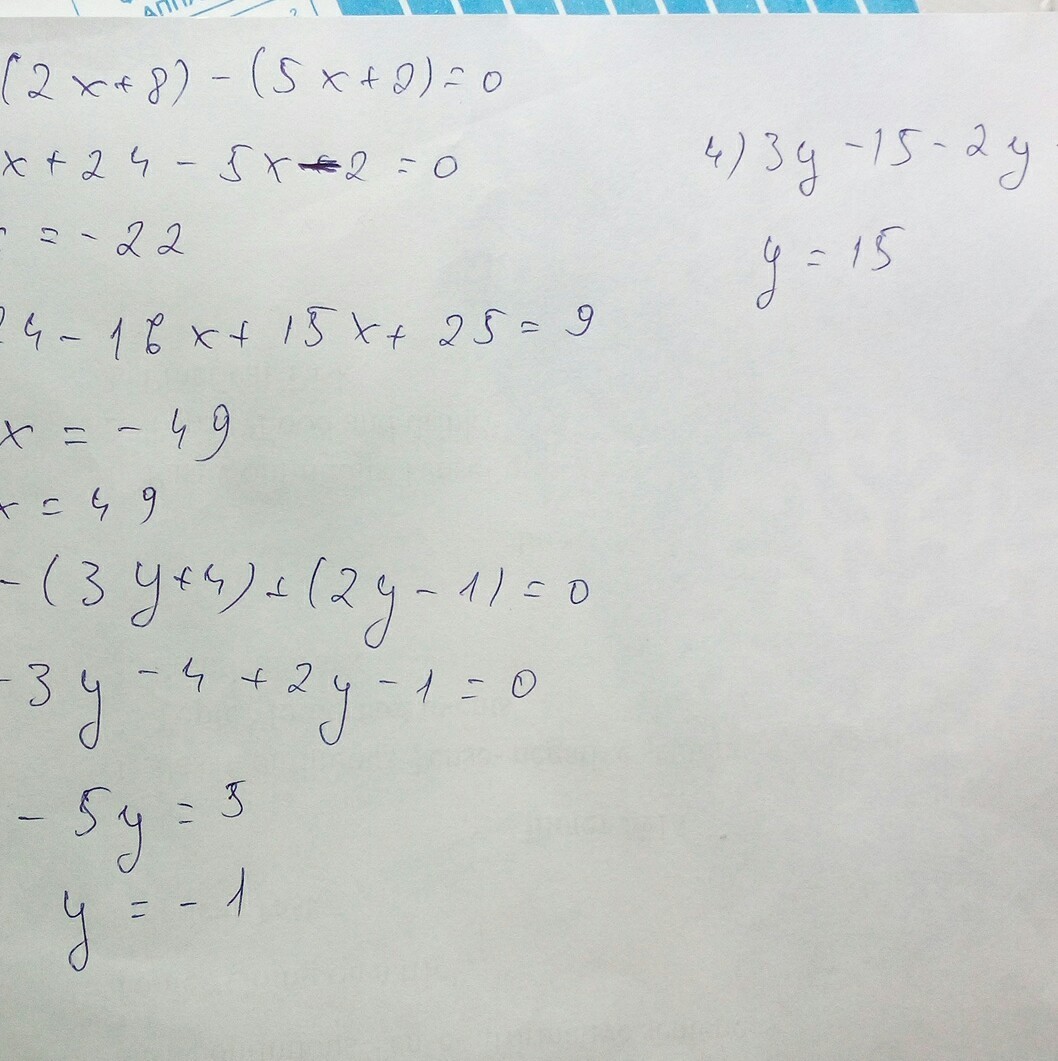 (2x+8)-(5x+2)=0
x+24-5x-2=0
=-22
4-16x+15x+25=9
x=-49
x=49
-(3y+4)+(2y-1)=0
-3y-4+2y-1=0
-5y=5
y=-1
4) 3y-15-2y
y=15